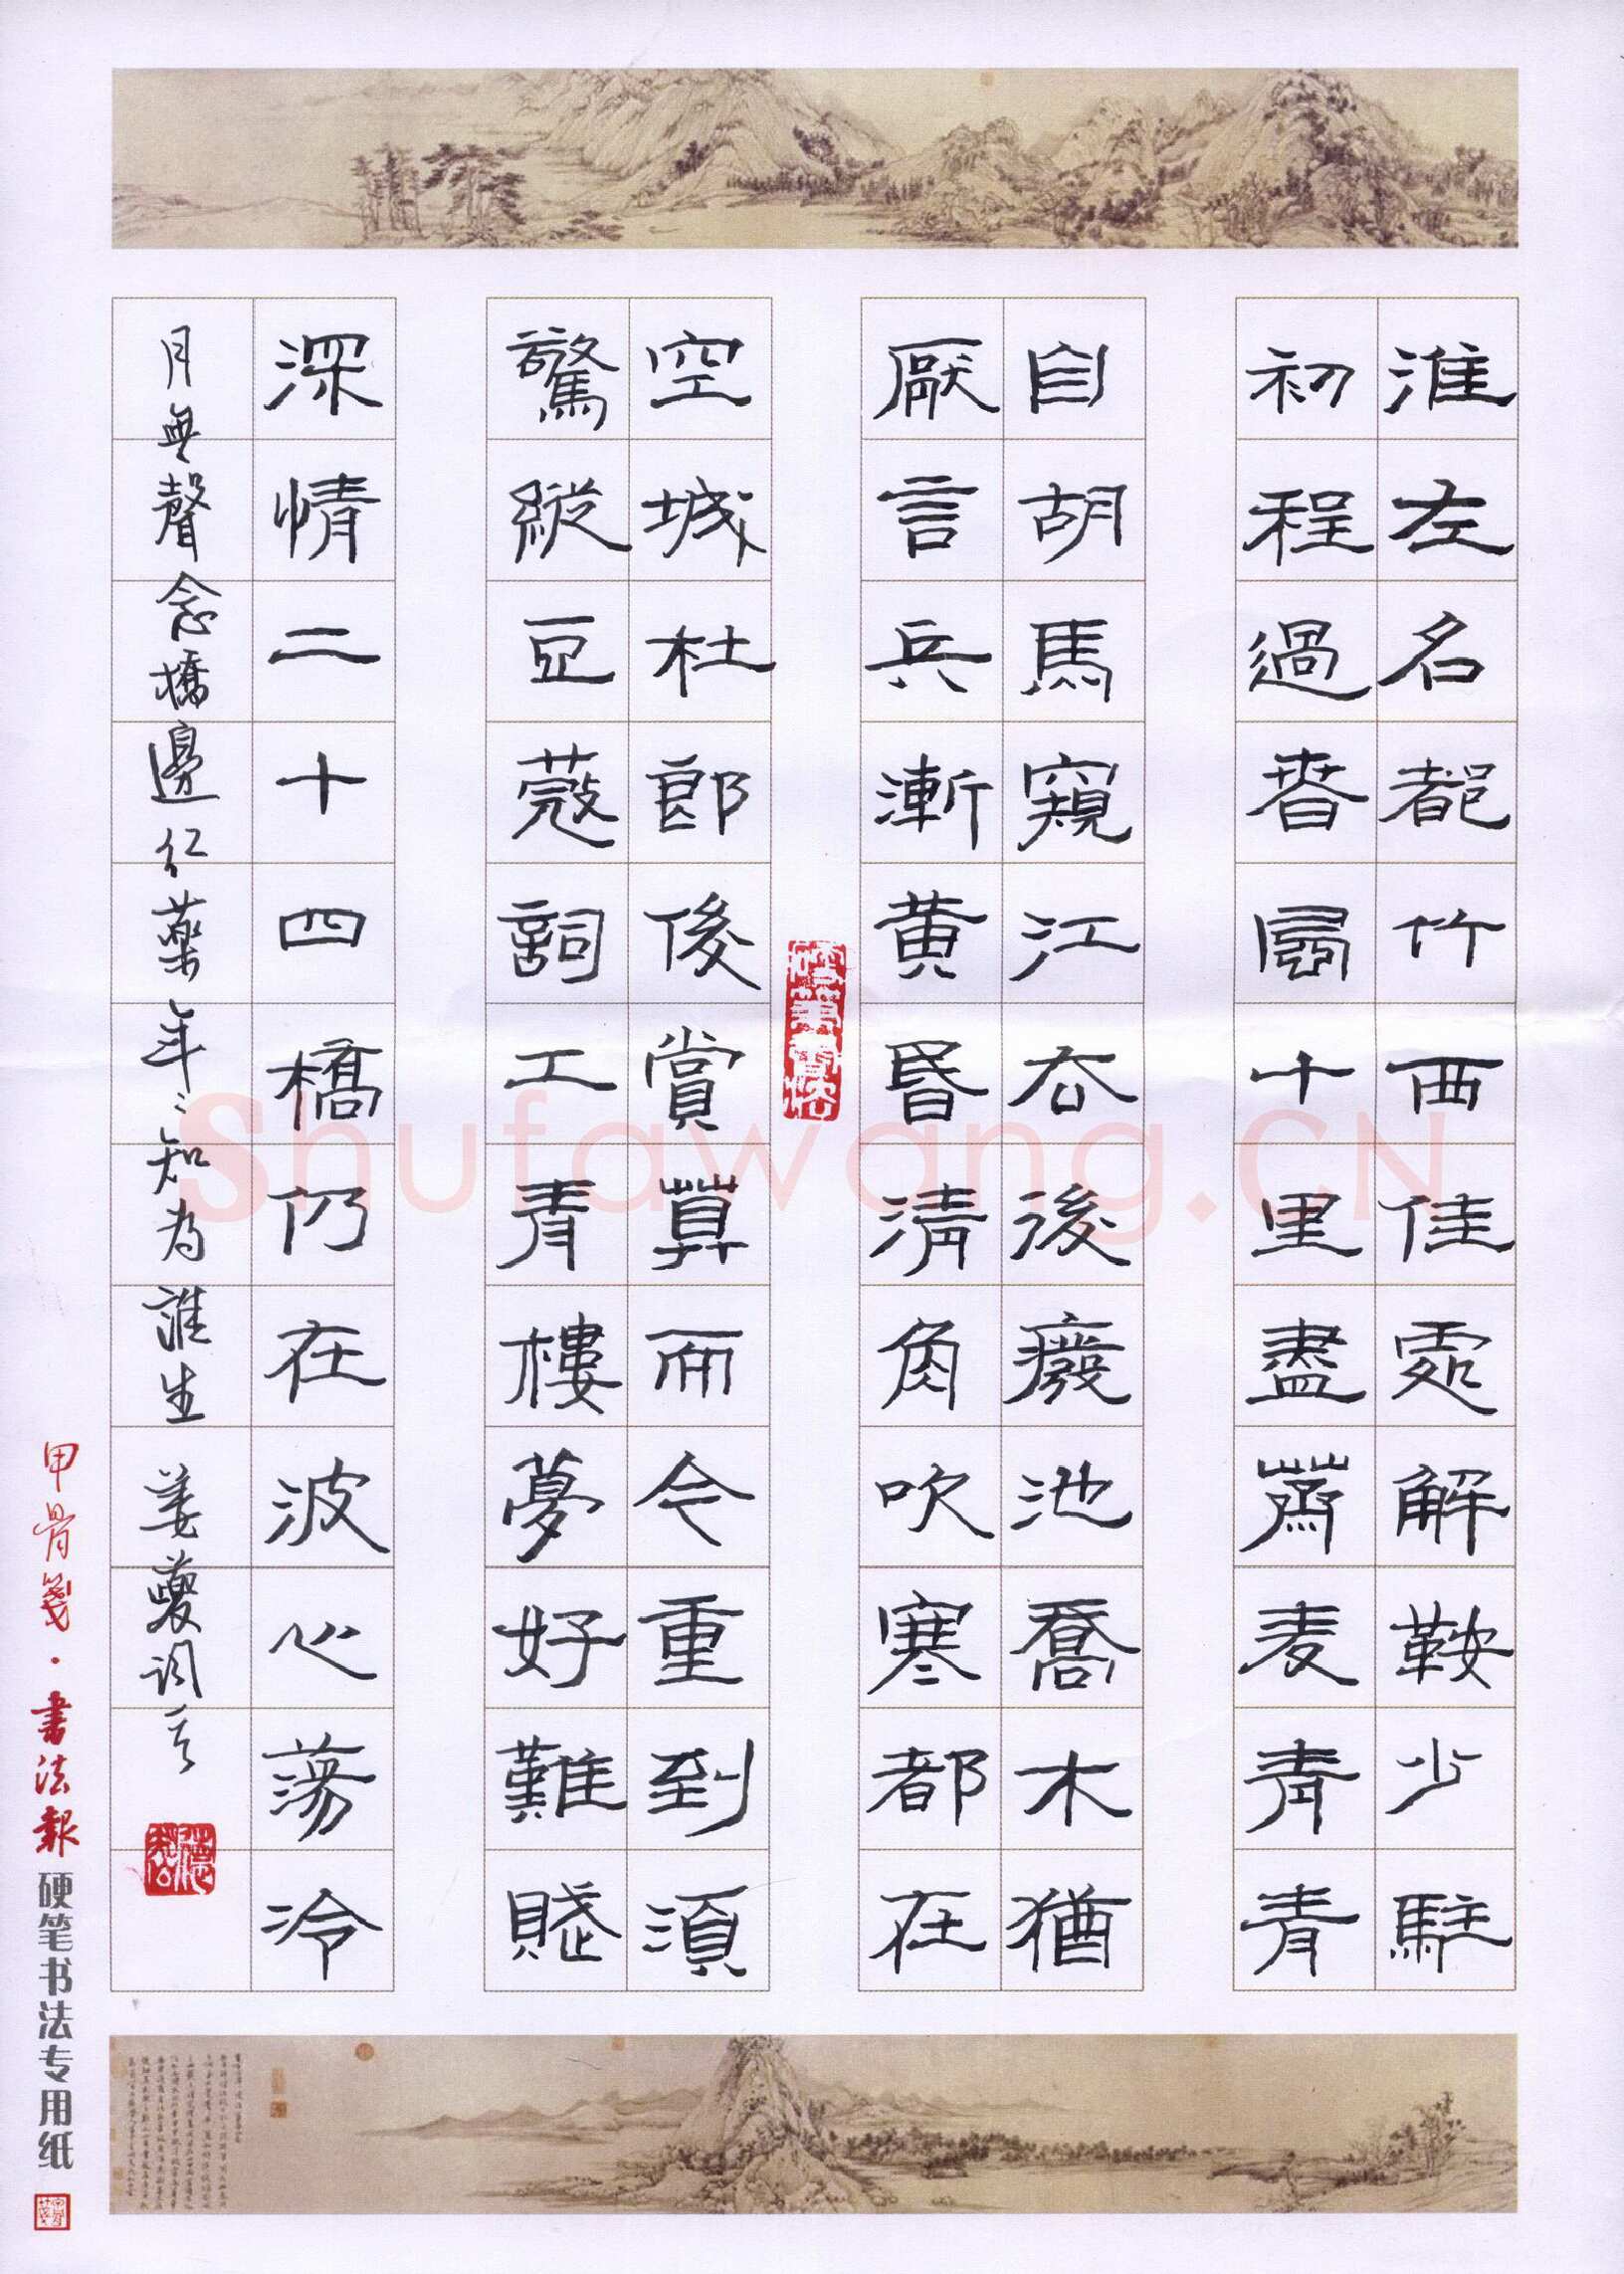 淮左名都竹西佳處解鞍少駐
初程過春風十里盡薺麦青青
自胡馬窺江去後廢池喬木猶
厭言兵漸黄昏清角吹寒都在
硬筆書法
空城杜郎後賞算而今重到須
驚縱豆蔻詞工青樓夢好難賦
深情二十四橋仍在波心蕩冷
月無聲念橋邊仁薬年〻知为誰生 姜夔詞
甲骨笺·書法報 硬笔书法专用纸
Shufawang.CN